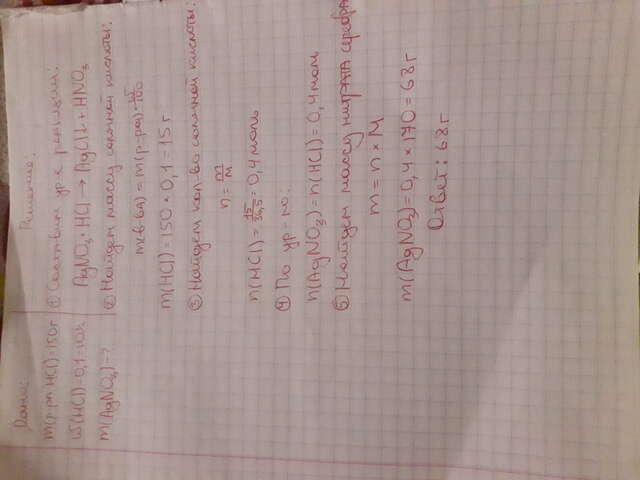 Дано:
m(р-ра HCl)=150г
ω(HCl)=0,1=10%
m(AgNO₃)-?
Решение:
① Составим ур-е реакции:
AgNO₃ + HCl → AgCl↓ + HNO₃
② Найдем массу соляной кислоты:
m(в-ва) = m(р-ра) × ω/100
m(HCl) = 150 × 0,1 = 15 г
③ Найдем кол-во соляной кислоты:
n = m/M
n(HCl) = 15/36,5 = 0,4 моль
④ По ур-ю:
n(AgNO₃) = n(HCl) = 0,4 моль
⑤ Найдем массу нитрата серебра
m = n × M
m(AgNO₃) = 0,4 × 170 = 68 г
Ответ: 68 г